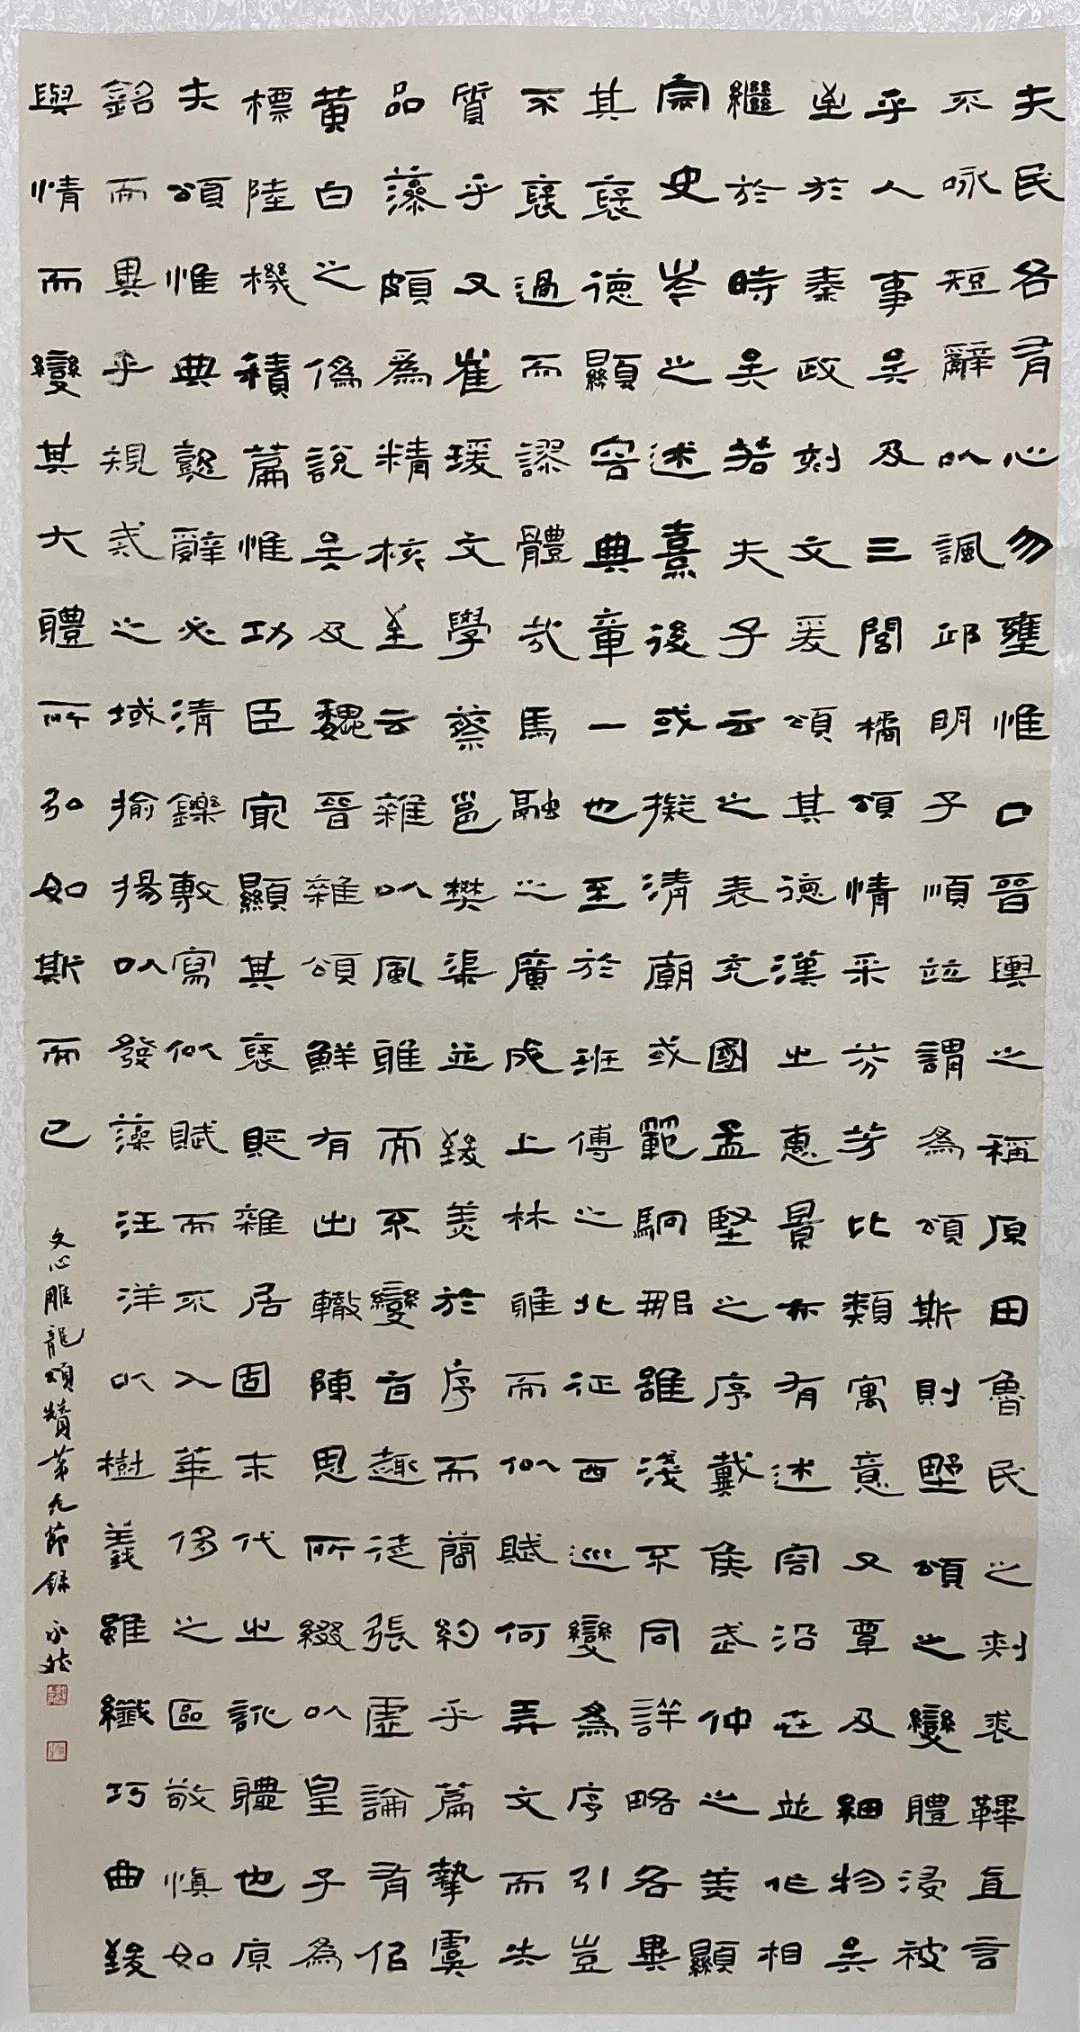 夫民各有心勿壅惟口晉輿之稱原田魯民之刺裘鞸直言
不咏短辭以諷邱明子順竝謂為頌斯則野頌之變體浸被
乎人事矣及三閭橘頌情采芬芳比類寓意又覃及細物矣
至於秦政刻文爰頌其德漢之惠景亦有述容沿世並作相
繼於時矣若夫子云之表充國孟堅之序戴侯武仲之美顯
宗史岑之述熹後或擬清廟或範駉那雖淺不同詳略各異
其褒德顯容典章一也至於班傅之北征西巡變為序引豈
不褒過而謬體哉馬融之廣成上林雅而似賦何弄文而失
質乎又崔瑗文學蔡邕樊渠並致美於序而簡約乎篇摯虞
品藻頗為精核至云雜以風雅而不變旨趣徒張虛論有佀
黃白之偽說矣及魏晉雜頌鮮有出轍陳思所綴以皇子為
標陸機積篇惟功臣最顯其褒貶雜居固末代之訛體也原
夫頌惟典懿辭必清鑠敷寫似賦而不入華侈之區敬慎如
銘而異乎規式之域揄揚以發藻汪洋以樹義雖纖巧曲致
與情而變其大體所弘如斯而已
文心雕龍頌贊第九節錄